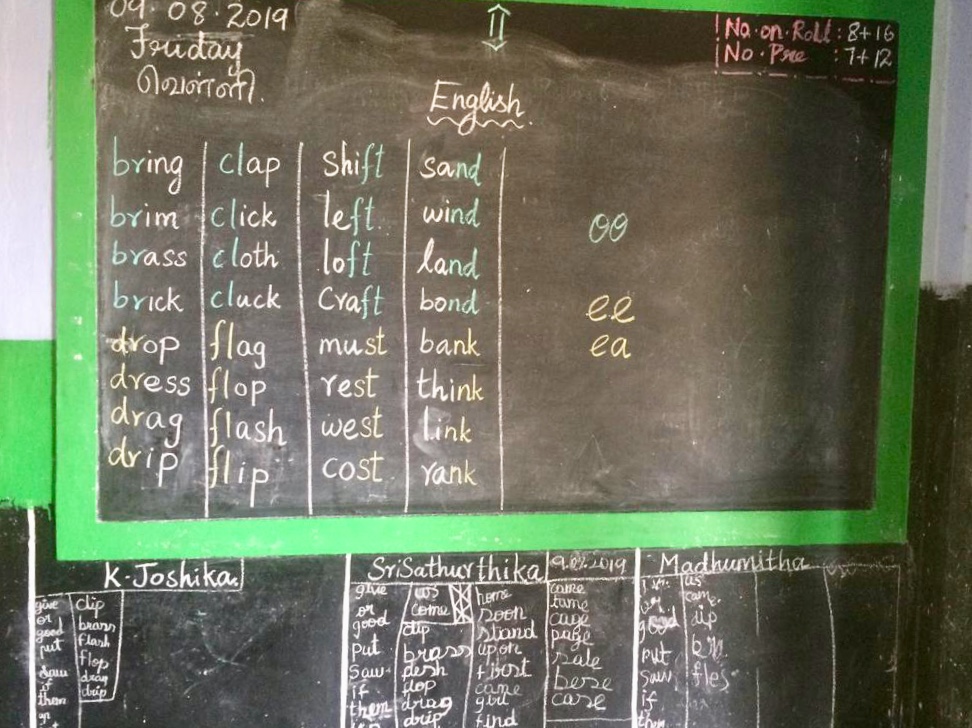 09.08.2019
Friday
வெள்ளி.
No.on.Roll : 8+16
No.Pre : 7+12
English
bring clap shift sand
brim click left wind
brass cloth loft land
brick cluck Craft bond
drop flag must bank
dress flop rest think
drag flash west link
drip flip cost rank
oo
ee
ea
K.Joshika.
give clip
or brass
good flash
put flop
saw drag
if drip
them
SriSathurthika 9.08.2019
give us home came
or come soon tame
good clip stand cage
put brass upon page
saw first sale
if flop came
them drag girl case
drip find
Madhumitha
us
came
good
put
saw
if